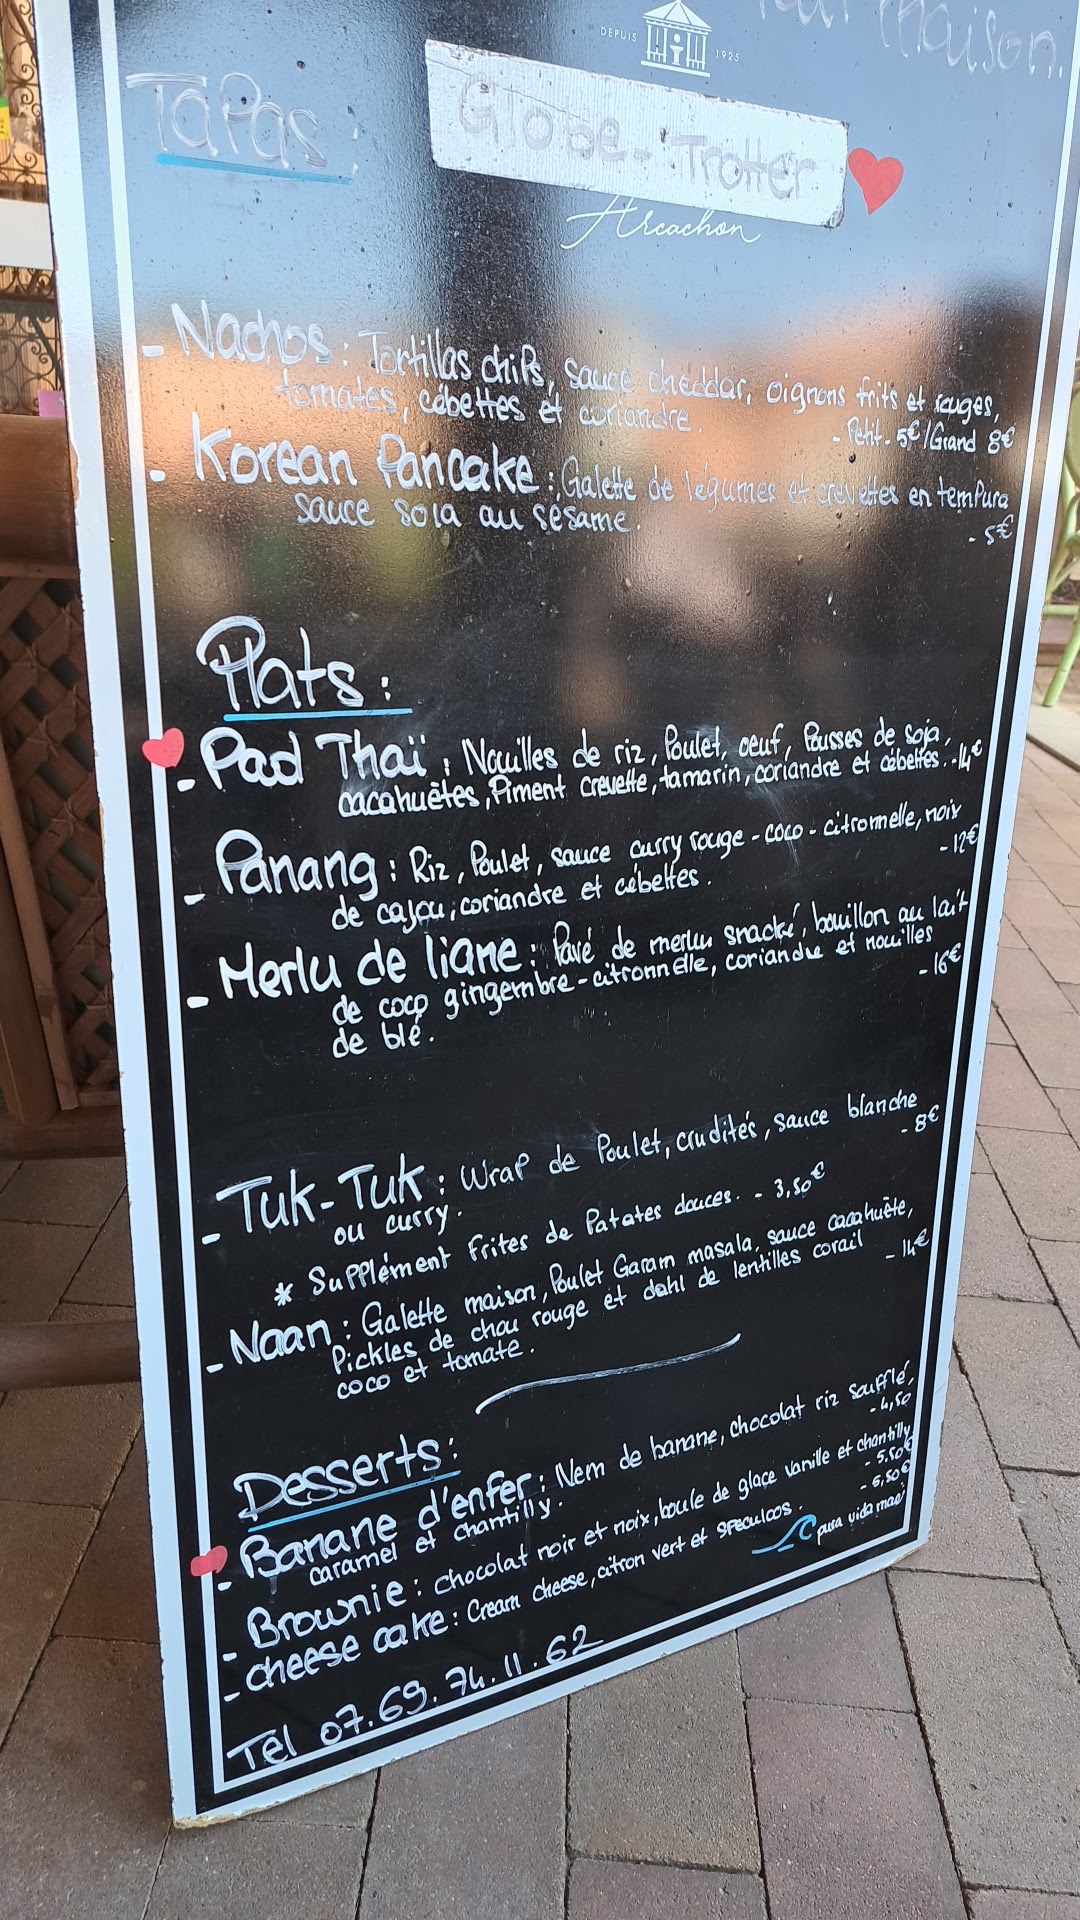 maison.
DEPUIS 1925
Tapas :
Globe-Trotter
Arcachon
- Nachos : Tortillas chips, sauce cheddar, oignons frits et rouges,
tomates, cébettes et coriandre.
- Petit- 5€ / Grand 8€
- Korean Pancake : Galette de légumes et crevettes en tempura
sauce soia au sésame.
- 5€
Plats :
- Pad Thaï : Nouilles de riz, Poulet, oeuf, Pousses de soja,
cacahuètes, Piment crevette, tamarin, coriandre et cébettes. -14€
- Panang : Riz, Poulet, sauce curry rouge - coco - citronnelle, noix
de cajou, coriandre et cébettes.
- 12€
- Merlu de liane : Pavé de merlu snacké, bouillon au lait
de coco gingembre-citronnelle, coriandre et nouilles
de blé.
- 16€
- Tuk-Tuk : Wrap de Poulet, crudités, sauce blanche
ou curry.
- 8€
* Supplément Frites de Patates douces. - 3,50€
- Naan : Galette maison, Poulet Garam masala, sauce cacahuète,
Pickles de chou rouge et dahl de lentilles corail
coco et tomate.
- 14€
Desserts :
- Banane d'enfer : Nem de banane, chocolat riz soufflé,
caramel et chantilly.
- 4,50
- Brownie : chocolat noir et noix, boule de glace vanille et chantilly
- 5,50€
- cheese cake : Cream cheese, citron vert et speculoos.
- 6,50€
pura vida mae
Tel 07.69.74.11.62